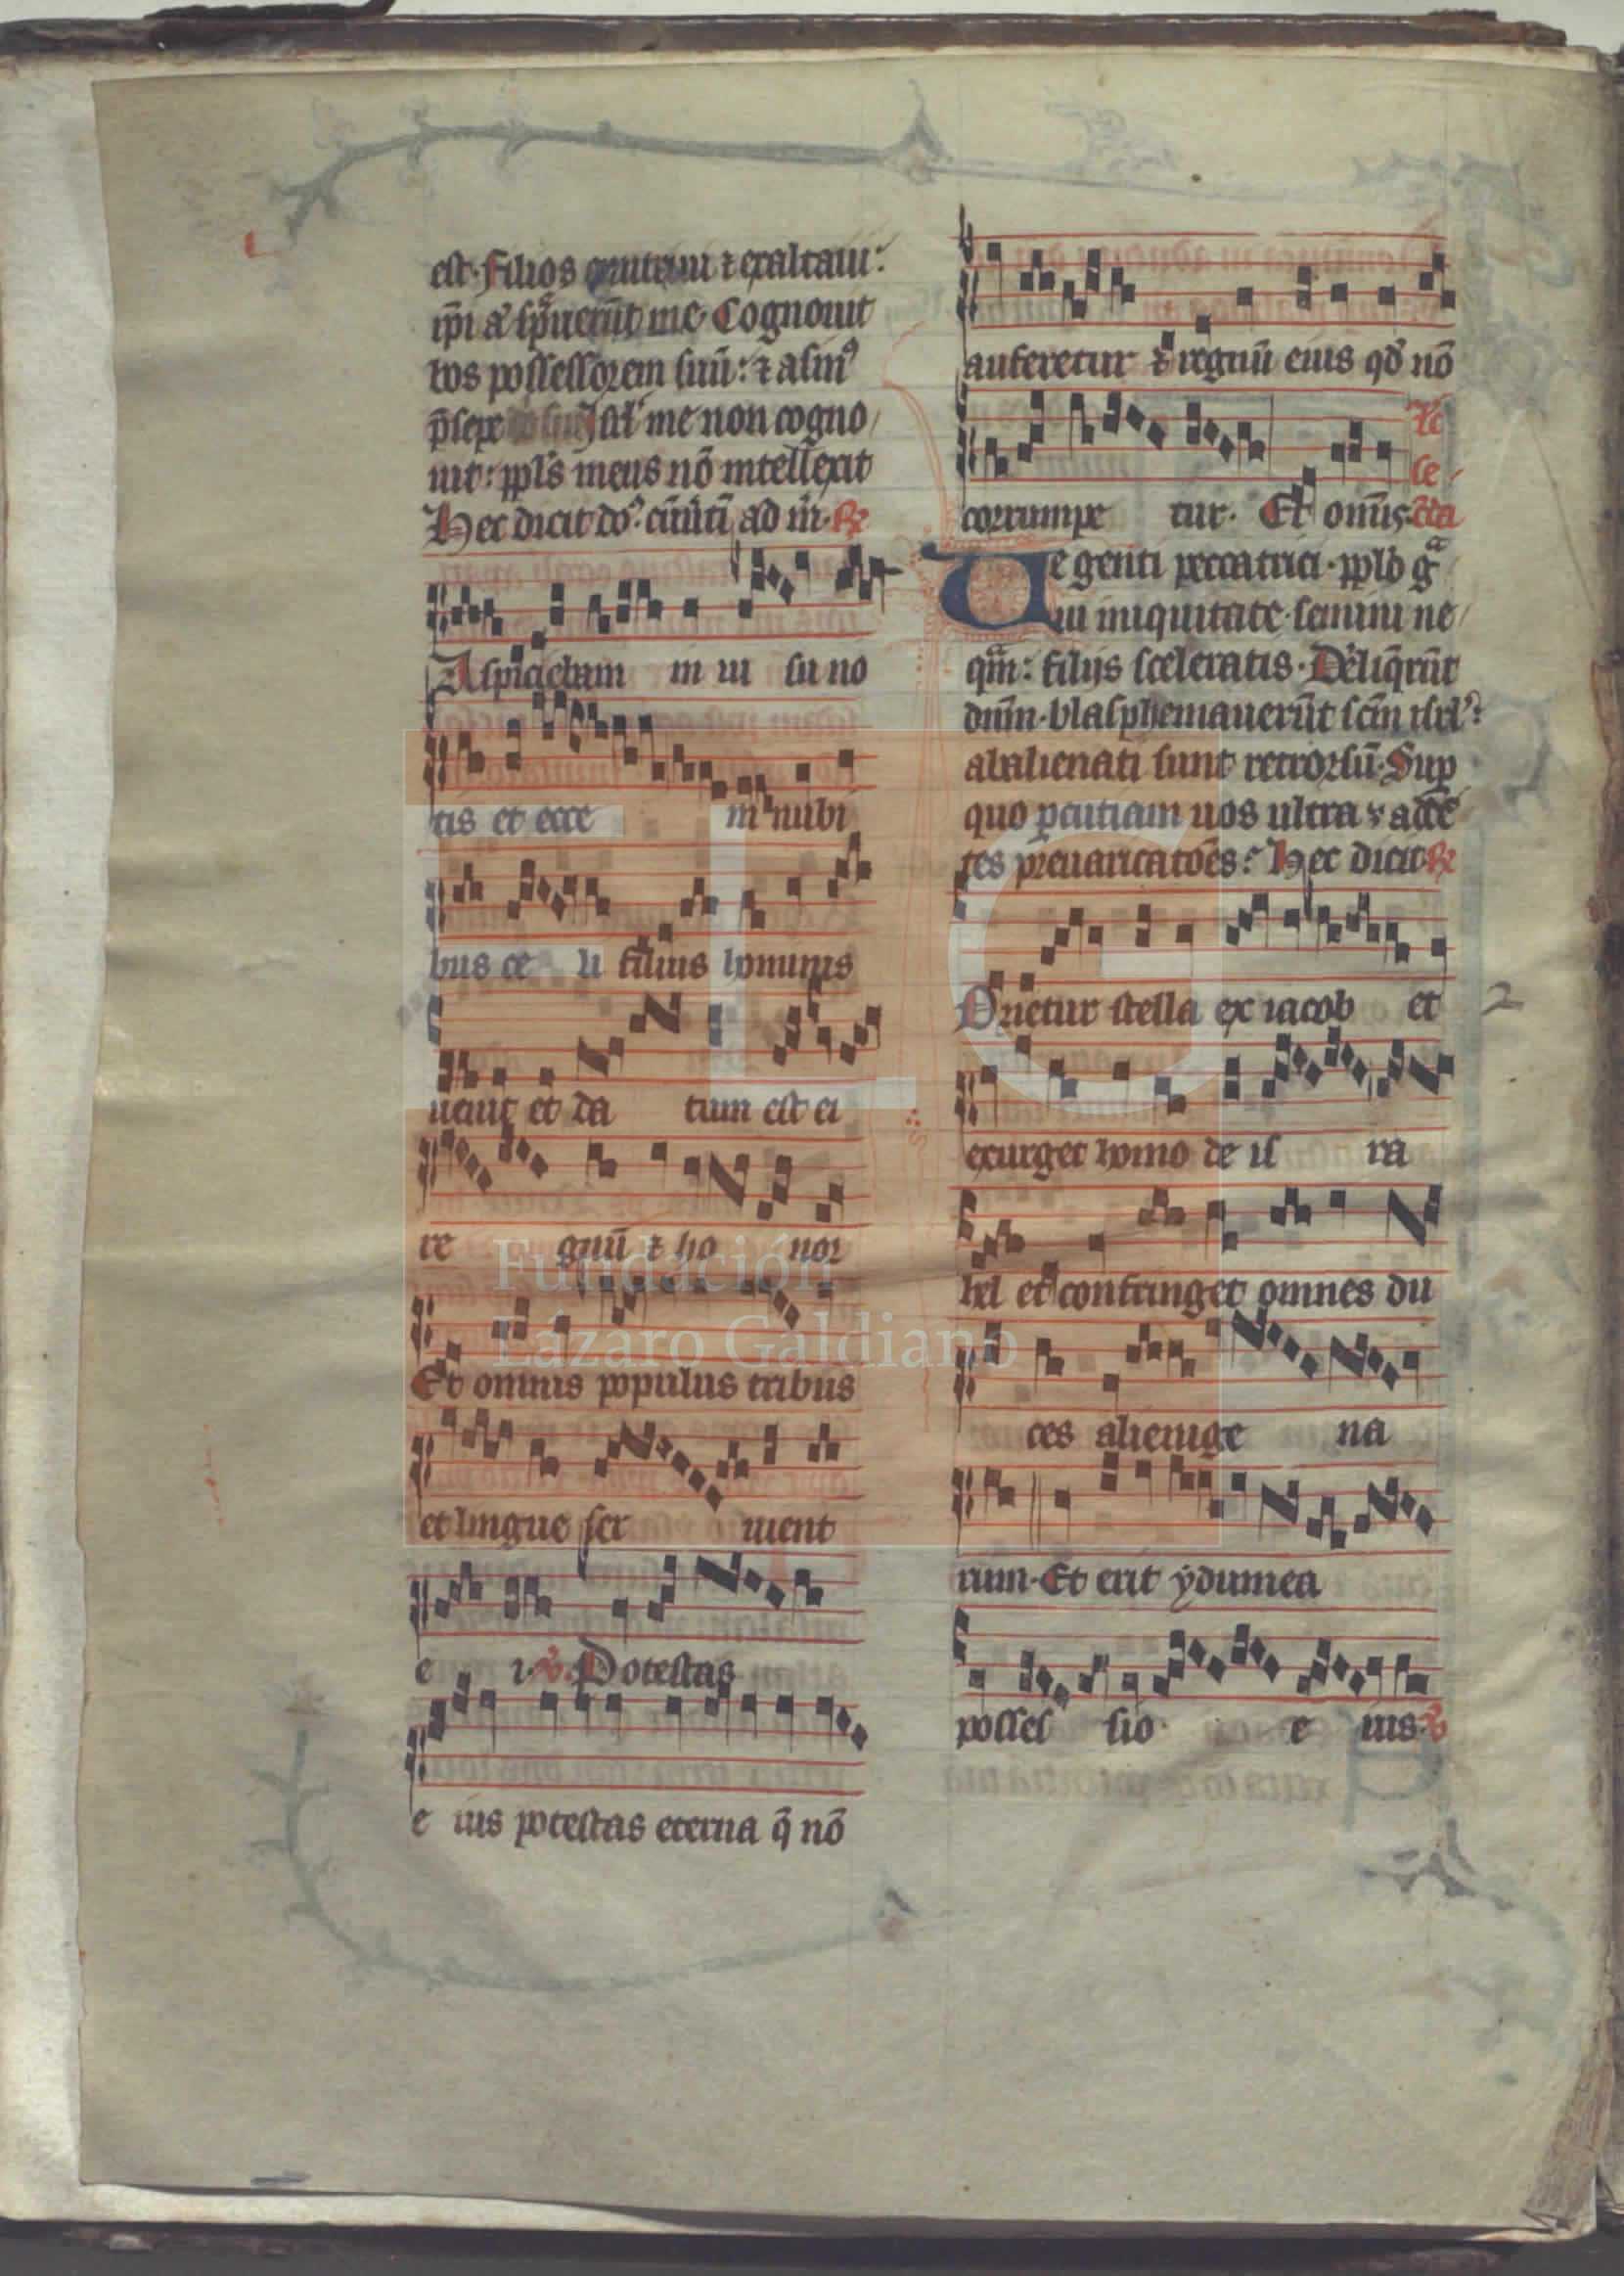 est. Filios enutriui ⁊ exaltaui:
ip̄i aʹ sp̄uerūt me. Cognouit
bos possessorem suū: ⁊ asinꝰ
p̄sepe Isrl̓ me non cogno
uit: pp̄ls meus nō intellexit
Hec dicit dō.ᵒ ad m̄. ℟
Aspiciebam in ui su no
tis et ecce in nubi
bus ce li filius hominis
uenit et da tum est ei
re gnū ⁊ ho nor
Et omnis populus tribus
et lingue ser uient
e i. ℣. Potestas
e ius potestas eterna q̄ nō
auferetur ⁊ regnū eius qd̓ nō
corrumpe tur. Et omīs. c̄da
le
Ue genti peccatrici. pp̄lo gᵃ
ui iniquitate. semini ne
qᵃm: filijs sceleratis. Dēliq̄rūt
dn̄m. blasphemauerūt sc̄m isrl̓:
abalienati sunt retrorsū. Sup̄
quo ꝑcutiam uos ultra adde
tes p̄uaricatōes: Hec dicit ℟
Orietur stella ex iacob et
exurget homo de is ra
hel et confringet omnes du
ces alienige na
rum. Et erit ydumea
posses sio e ius. ℣
2
FLG
Fundación
Lázaro Galdiano